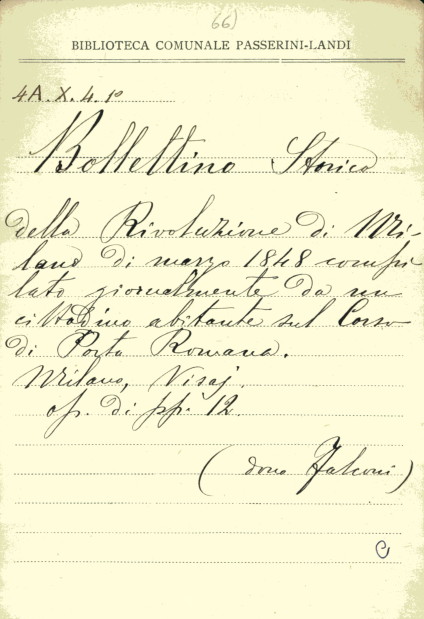 66)
BIBLIOTECA COMUNALE PASSERINI-LANDI
4A.X.4.1º
Bollettino Storico
della Rivoluzione di Mi-
lano di marzo 1848 compi-
lato giornalmente da un
cittadino abitante sul Corso
di Porta Romana.
Milano, Visaj.
op. di pp. 12.
(dono Falconi)
C